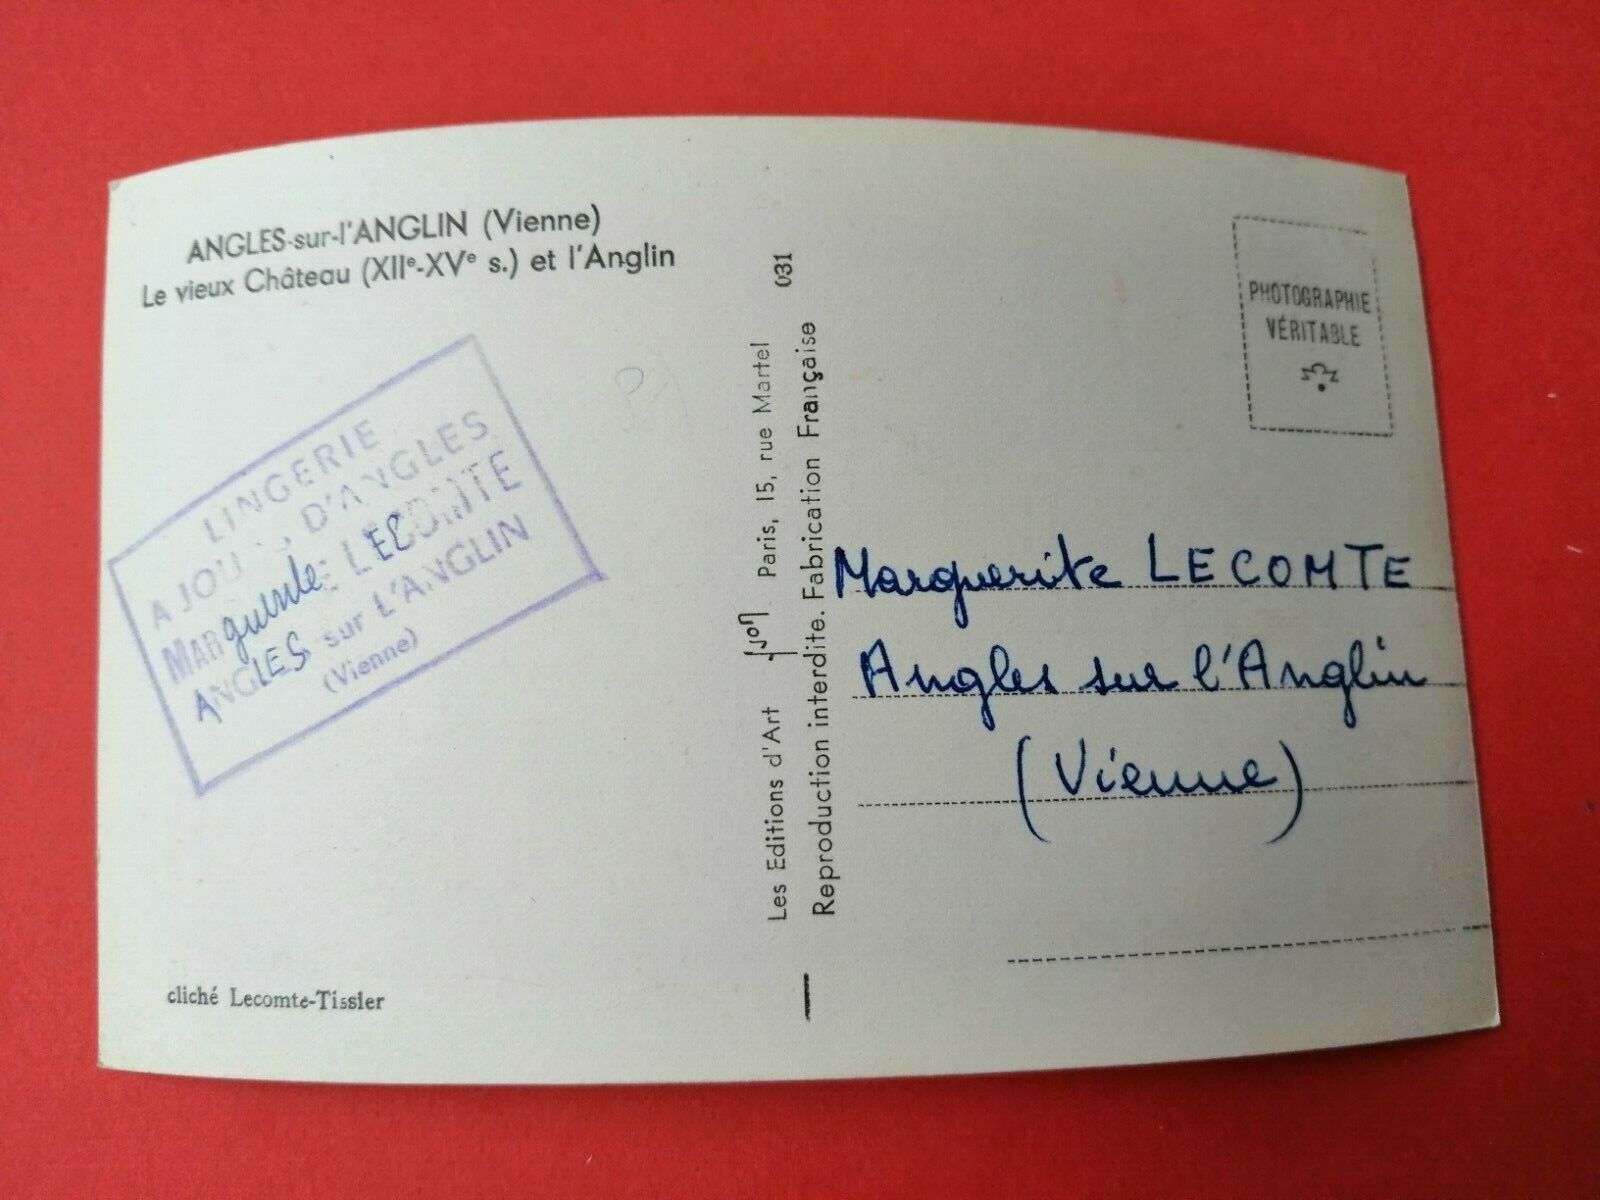 ANGLES-sur-l'ANGLIN (Vienne)
Le vieux Château (XIIe-XVe s.) et l'Anglin
LINGERIE
A JOU D'ANGLES
MARguerite LECOMTE
ANGLES sur L'ANGLIN
(Vienne)
cliché Lecomte-Tissier
Les Editions d'Art Paris, 15, rue Martel 031
Reproduction interdite. Fabrication Française
PHOTOGRAPHIE
VÉRITABLE
Marguerite LECOMTE
Angles sur l'Anglin
(Vienne)